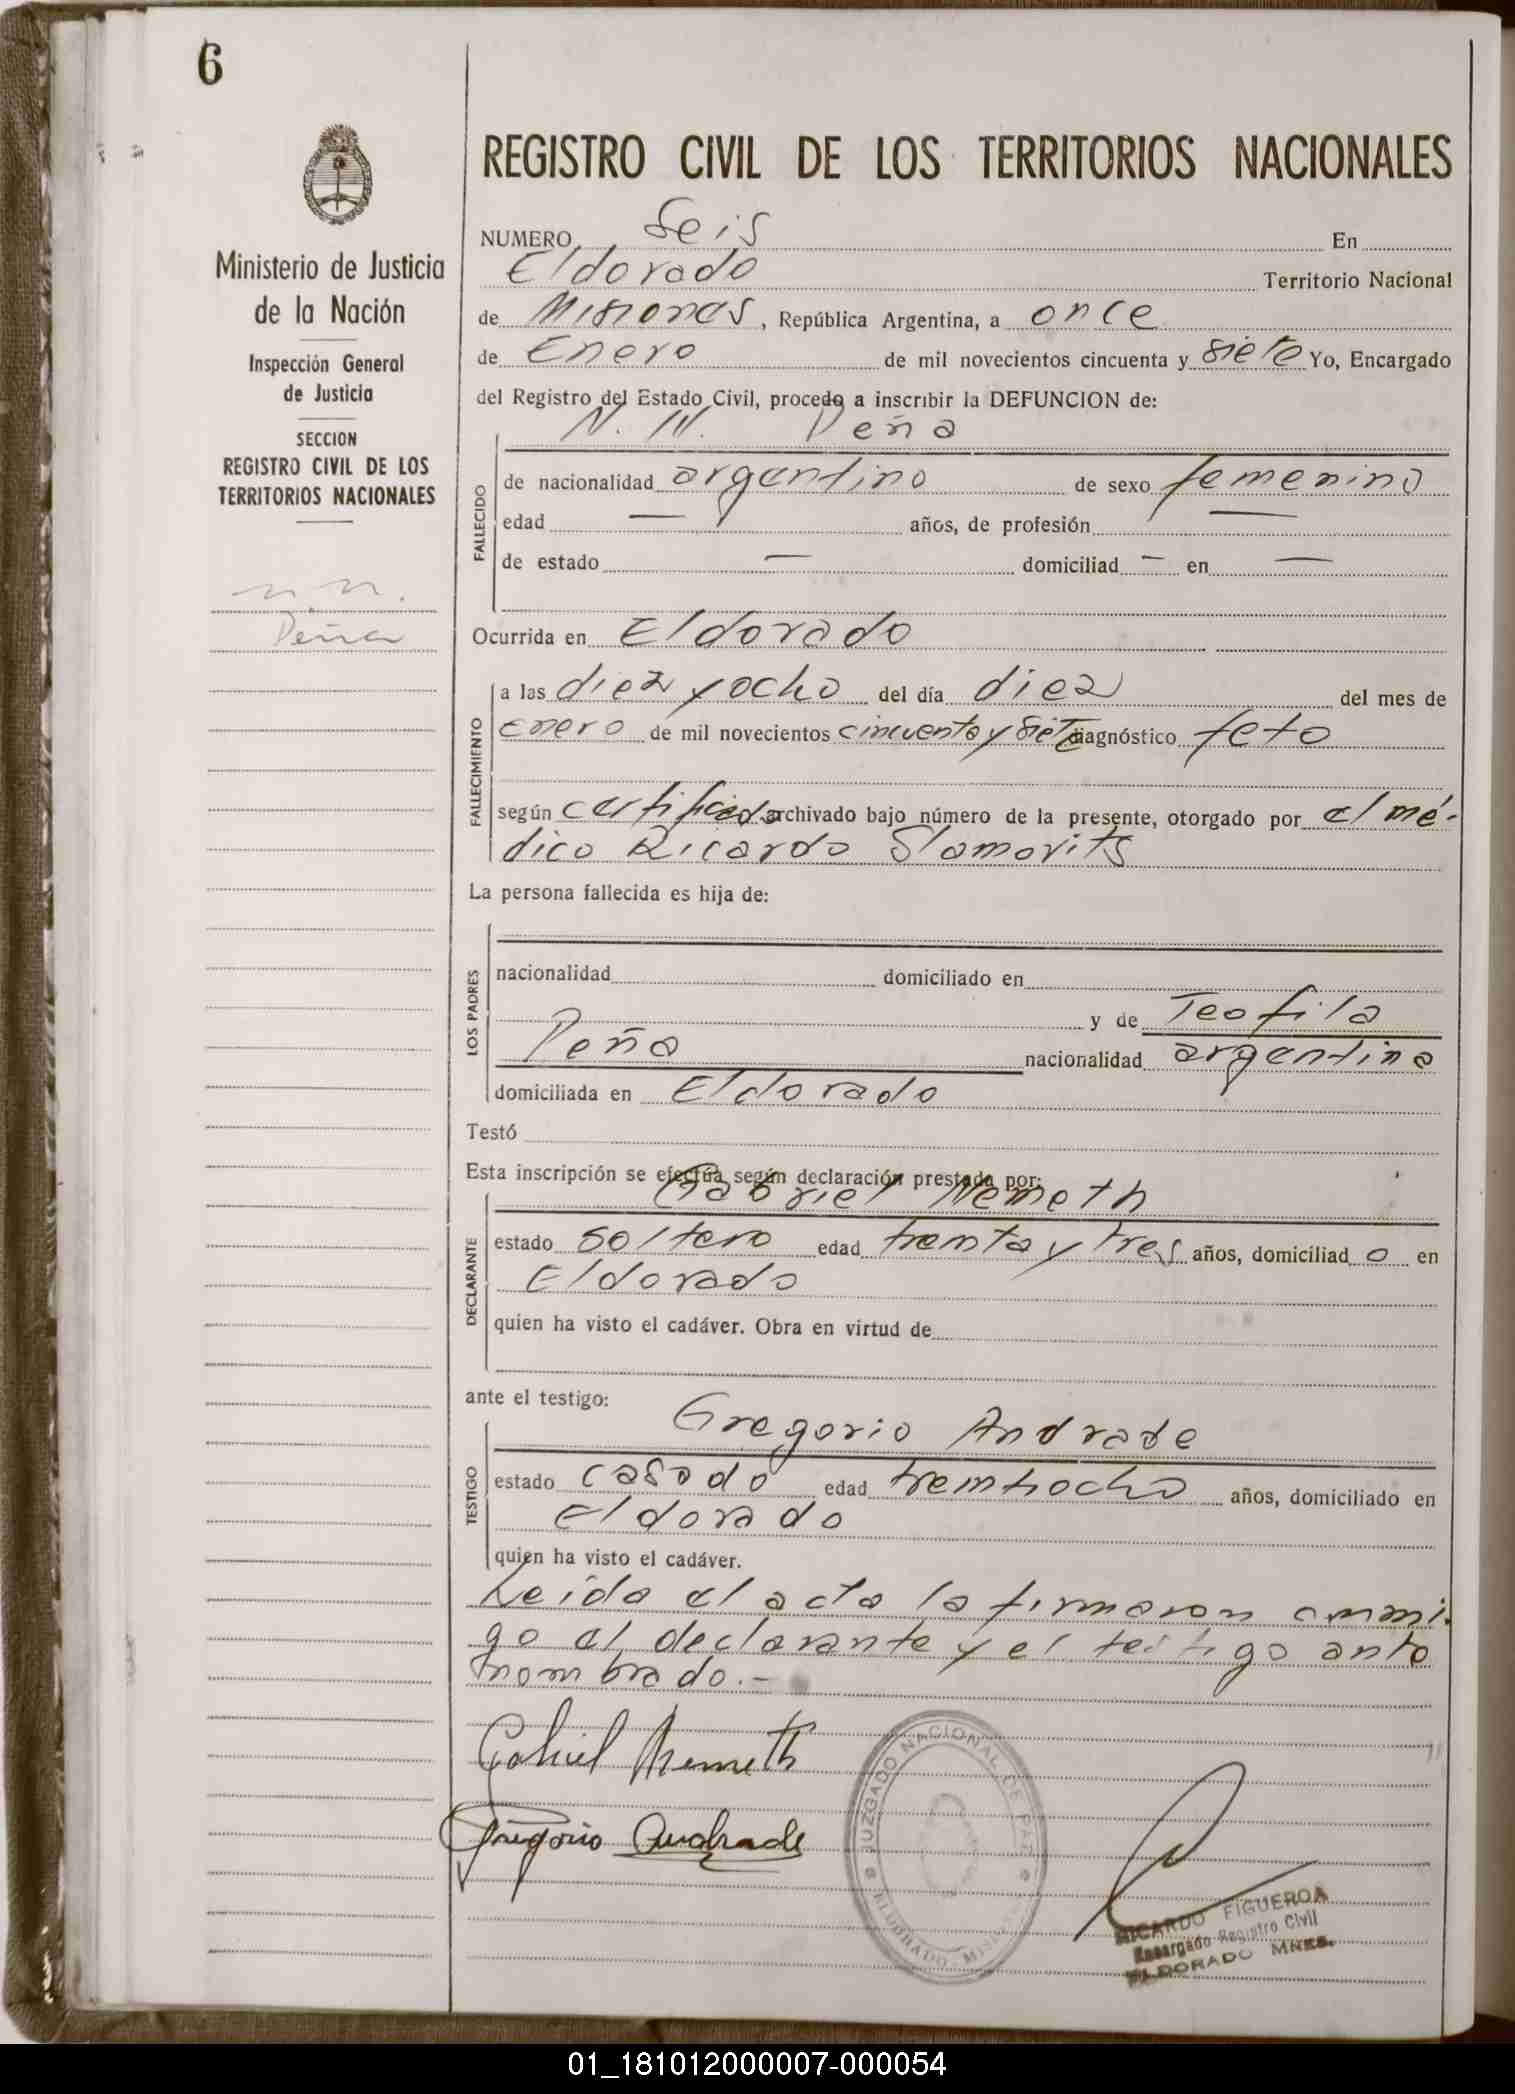 6
REGISTRO CIVIL DE LOS TERRITORIOS NACIONALES
Ministerio de Justicia
de la Nación
Inspección General
de Justicia
SECCION
REGISTRO CIVIL DE LOS
TERRITORIOS NACIONALES
n.n.
Peña
NUMERO Seis En
Eldorado Territorio Nacional
de Misiones, República Argentina, a once
de Enero de mil novecientos cincuenta y siete Yo, Encargado
del Registro del Estado Civil, procedo a inscribir la DEFUNCION de:
N. N. Peña
FALLECIDO
de nacionalidad argentino de sexo femenino
edad — años, de profesión —
de estado — domiciliad — en —
Ocurrida en Eldorado
FALLECIMIENTO
a las diez y ocho del día diez del mes de
Enero de mil novecientos cincuenta y siete diagnóstico feto
según certificado archivado bajo número de la presente, otorgado por el mé-
dico Ricardo Slamovits
La persona fallecida es hija de:
LOS PADRES
nacionalidad domiciliado en
y de Teofila
Peña nacionalidad argentina
domiciliada en Eldorado
Testó
Esta inscripción se efectúa según declaración prestada por:
Gabriel Nemeth
DECLARANTE
estado soltero edad treinta y tres años, domiciliad o en
Eldorado
quien ha visto el cadáver. Obra en virtud de
ante el testigo:
Gregorio Andrade
TESTIGO
estado casado edad treintiocho años, domiciliado en
Eldorado
quien ha visto el cadáver.
Leída el acta la firmaron conmi-
go el declarante y el testigo ante
nombrado.-
Gabriel Nemeth
Gregorio Andrade
JUZGADO NACIONAL DE PAZ
ELDORADO - MISIONES
RICARDO FIGUEROA
Encargado Registro Civil
ELDORADO MNES.
01_181012000007-000054